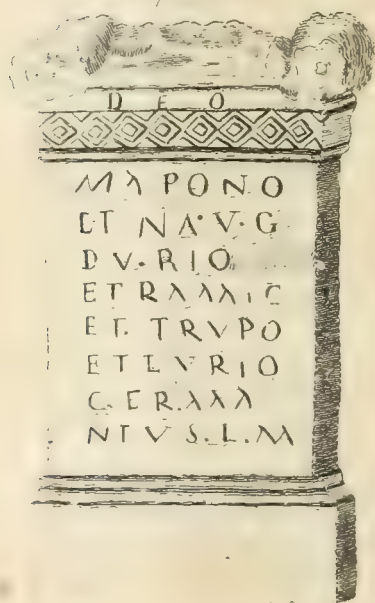 D E O
MAPONO
ET NA·V·G
DV·RIO
ET RAMIC
ET· TRVPO
ET LVRIO
C·ER·MA
NTVS·L·M